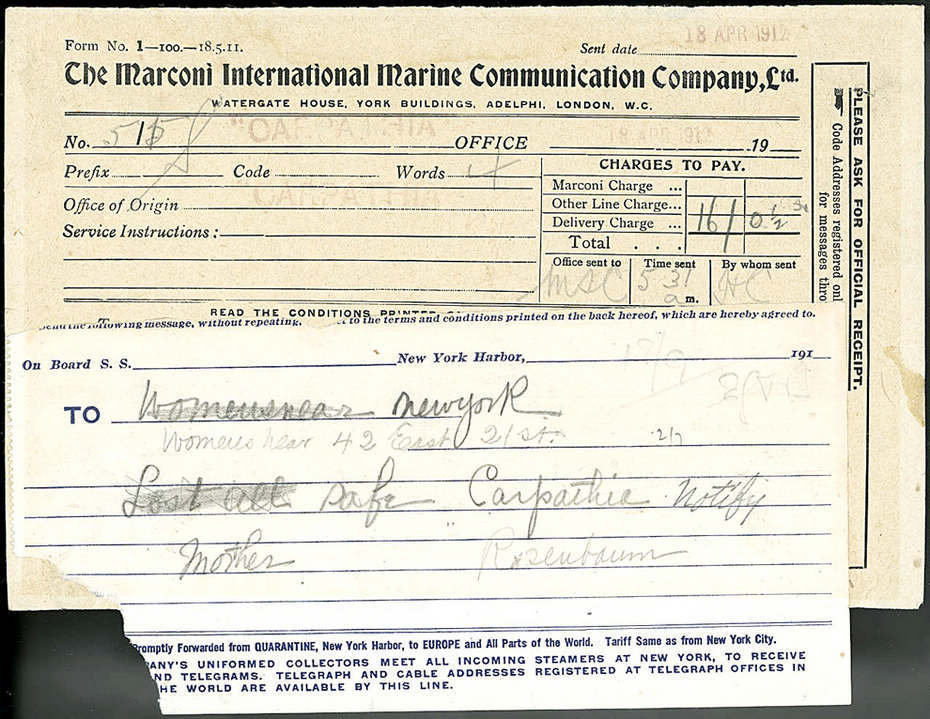 18 APR 1912
Form No. 1—100.—18.5.11. Sent date
The Marconi International Marine Communication Company, Ltd.
WATERGATE HOUSE, YORK BUILDINGS, ADELPHI, LONDON, W.C.
"CARPATHIA" 18 APR 1912
No. OFFICE 19
CHARGES TO PAY.
Prefix Code Words 4
Marconi Charge ...
CARPATHIA
Office of Origin
Other Line Charge...
Delivery Charge ... 16/ 0 1/2
Service Instructions:
Total . . .
Office sent to Time sent By whom sent
MSC 5 31 a m. HC
PLEASE ASK FOR OFFICIAL RECEIPT.
Code Addresses registered onl
for messages thro
READ THE CONDITIONS PRINTED
Send the following message, without repeating, to the terms and conditions printed on the back hereof, which are hereby agreed to.
On Board S. S. New York Harbor, 191
TO Womenswear Newyork
Womenswear 42 East 21 St.
Lost all safe Carpathia Notify
Mother Rosenbaum
Promptly Forwarded from QUARANTINE, New York Harbor, to EUROPE and All Parts of the World. Tariff Same as from New York City.
PANY'S UNIFORMED COLLECTORS MEET ALL INCOMING STEAMERS AT NEW YORK, TO RECEIVE
ND TELEGRAMS. TELEGRAPH AND CABLE ADDRESSES REGISTERED AT TELEGRAPH OFFICES IN
HE WORLD ARE AVAILABLE BY THIS LINE.